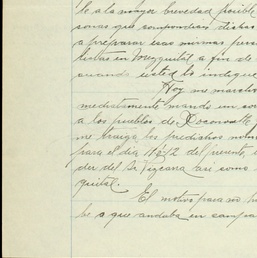 te a la mayor brevedad posible
sonas que compondrán dichas
a preparar esas mismas pers
tentas en Mezquital a fin de
cuando usted lo indique
Hoy me marcho
mediatamente mando un cor
a los pueblos de
me traiga los predichos nom
para el día 11 ó 12 del presente,
der del Sr. Vizcarra así como
quital.
El motivo para no h
be o que andaba en compa